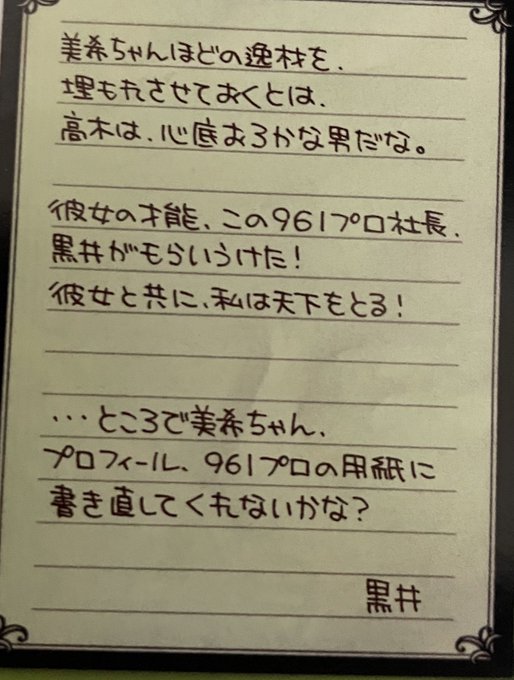 美希ちゃんほどの逸材を、
埋もれさせておくとは、
高木は、心底おろかな男だな。
彼女の才能、この961プロ社長、
黒井がもらいうけた！
彼女と共に、私は天下をとる！
…ところで美希ちゃん、
プロフィール、961プロの用紙に
書き直してくれないかな？
黒井